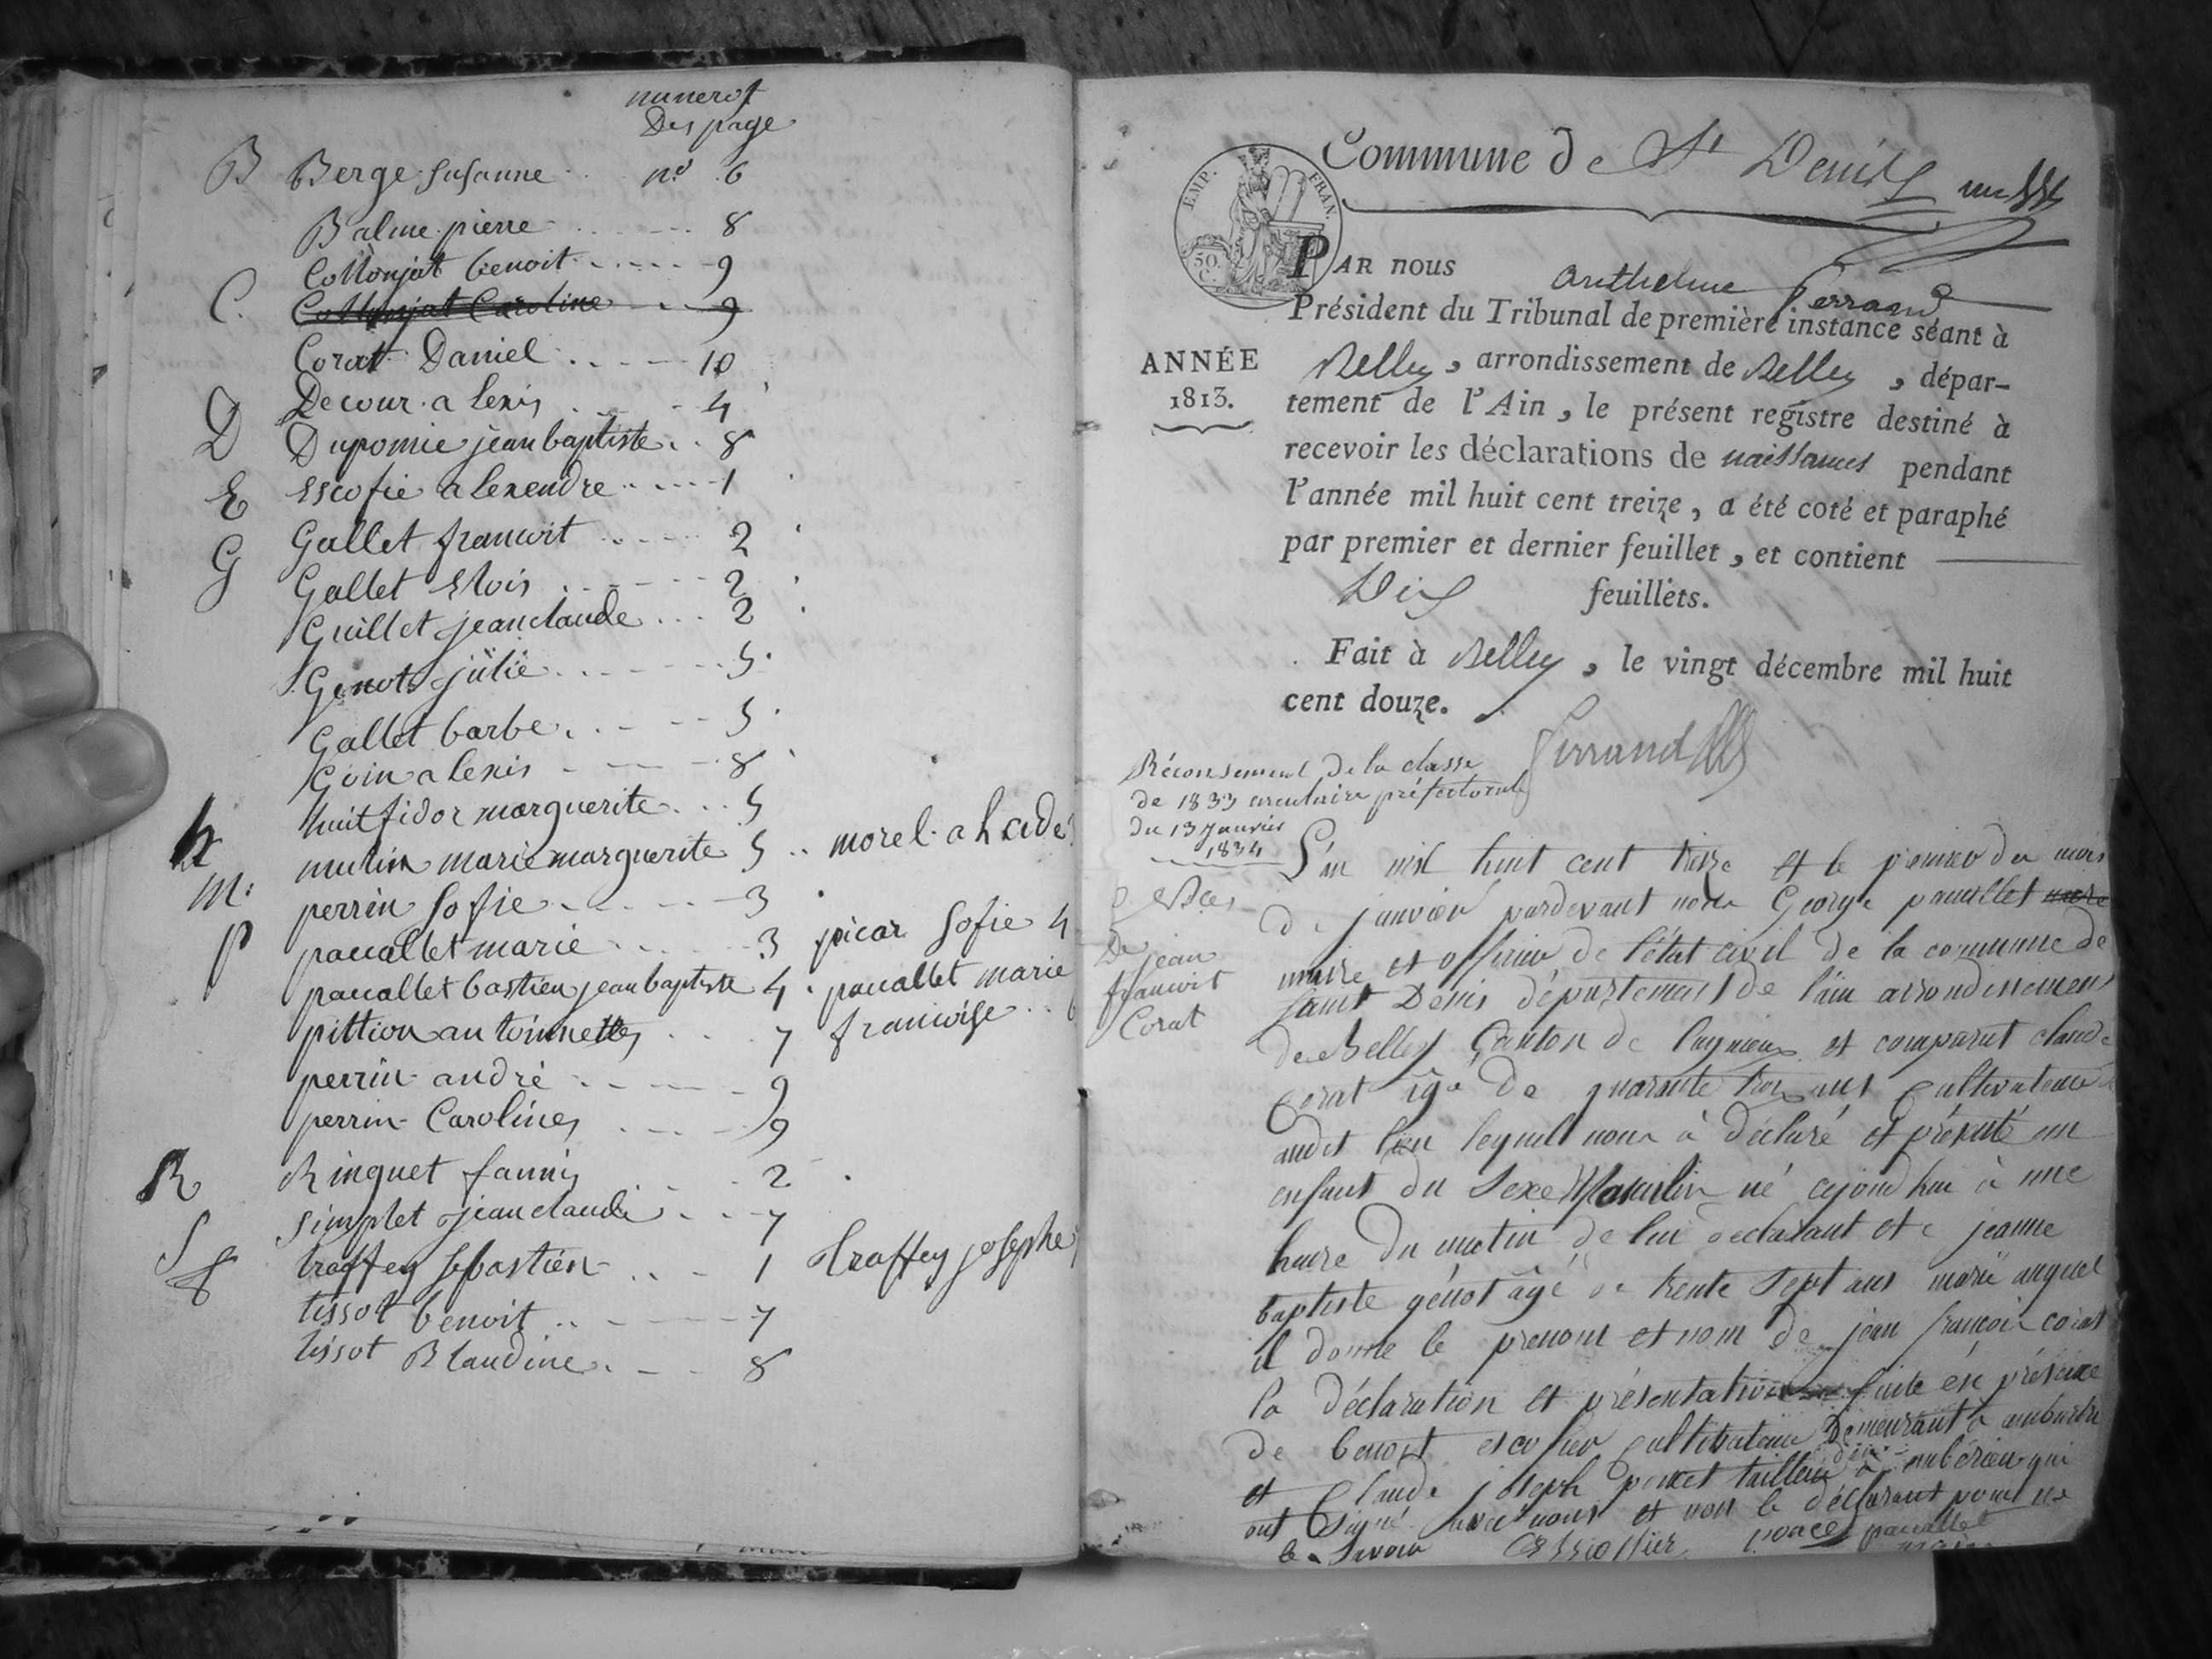 numerot
Des page
B Berge susanne nº 6
Balme pierre 8
Collonjat benoit 9
C. Collonjat Caroline 9
Corat Daniel 10
Decour alexis 4
D Dupomie jean baptiste 8
E escofie alexendre 1
G Gallet francoit 2
Gallet Elois 2
Guillet jean claude 2
Genot julie 5
Gallet barbe 5
Goin alexis 8
h huitfidor marguerite 5
m: mulin marie marguerite 5 morel
P perrin sofie 3
paucallet marie 3 picar sofie 4
paucallet bastien jean baptiste 4 paucallet marie
pittion antoinette 7 francoise
perrin andré 9
perrin Caroline 9
R Ringuet fanni 2
S simplet jean claude 7
t traffey sebastien 1 traffey josephe
tissot benoit 7
tissot Blandine 8
Commune de St Denis
EMP. FRAN.
50 C.
PAR nous Anthelme Ferrand
Président du Tribunal de première instance séant à
ANNÉE
1813.
Belley, arrondissement de Belley, dépar-
tement de l'Ain, le présent registre destiné à
recevoir les déclarations de naissances pendant
l'année mil huit cent treize, a été coté et paraphé
par premier et dernier feuillet, et contient
Dix feuillets.
Fait à Belley, le vingt décembre mil huit
cent douze.
Ferrand
Récensement de la classe
de 1833 circulaire préfectorale
du 13 Janvier
1834
De jean
francoit
Corat
L'an mil huit cent treize et le premier du mois
de janvier pardevant nous George paucallet
maire et officier de l'état civil de la commune de
saint Denis département de l'ain arrondissement
de Belley Canton de lagnieu et comparut claude
Corat âgé de quarante trois ans cultivateur
audit lieu lequel nous à déclaré et présenté un
enfant du sexe Masculin né cejourdhui à une
heure du matin de lui déclarant et de jeanne
baptiste génot âgé de trente sept ans marié auquel
il donne le prenom et nom de jean francois corat
la déclaration et présentation faite én présence
de benoit escofier cultivateur Demeurant a
et Claude joseph poncet tailleur a ambérieu qui
ont Signé avec nous et non le déclarant pour ne
le Savoir poncet paucallet
maire